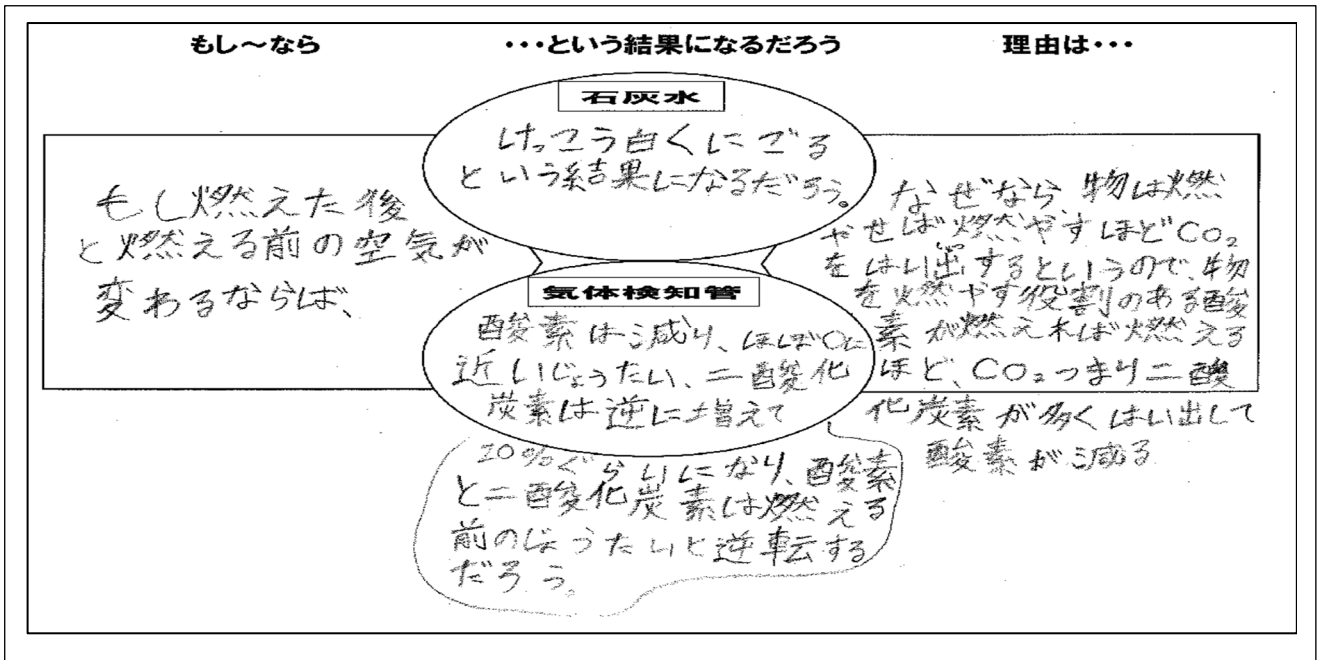 もし～なら
・・・という結果になるだろう
理由は・・・
もし燃えた後
と燃える前の空気が
変わるならば、
石灰水
けっこう白くにごる
という結果になるだろう。
気体検知管
酸素は減り、ほぼ0に
近いじょうたい、二酸化
炭素は逆に増えて
20%ぐらいになり、酸素
と二酸化炭素は燃える
前のじょうたいと逆転する
だろう。
なぜなら 物は燃
やせば燃やすほどCO₂
をはい出するというので、物
を火然やす役割のある酸
素が燃えれば燃える
ほど、CO₂つまり二酸
化炭素が多くはい出して
酸素が減る